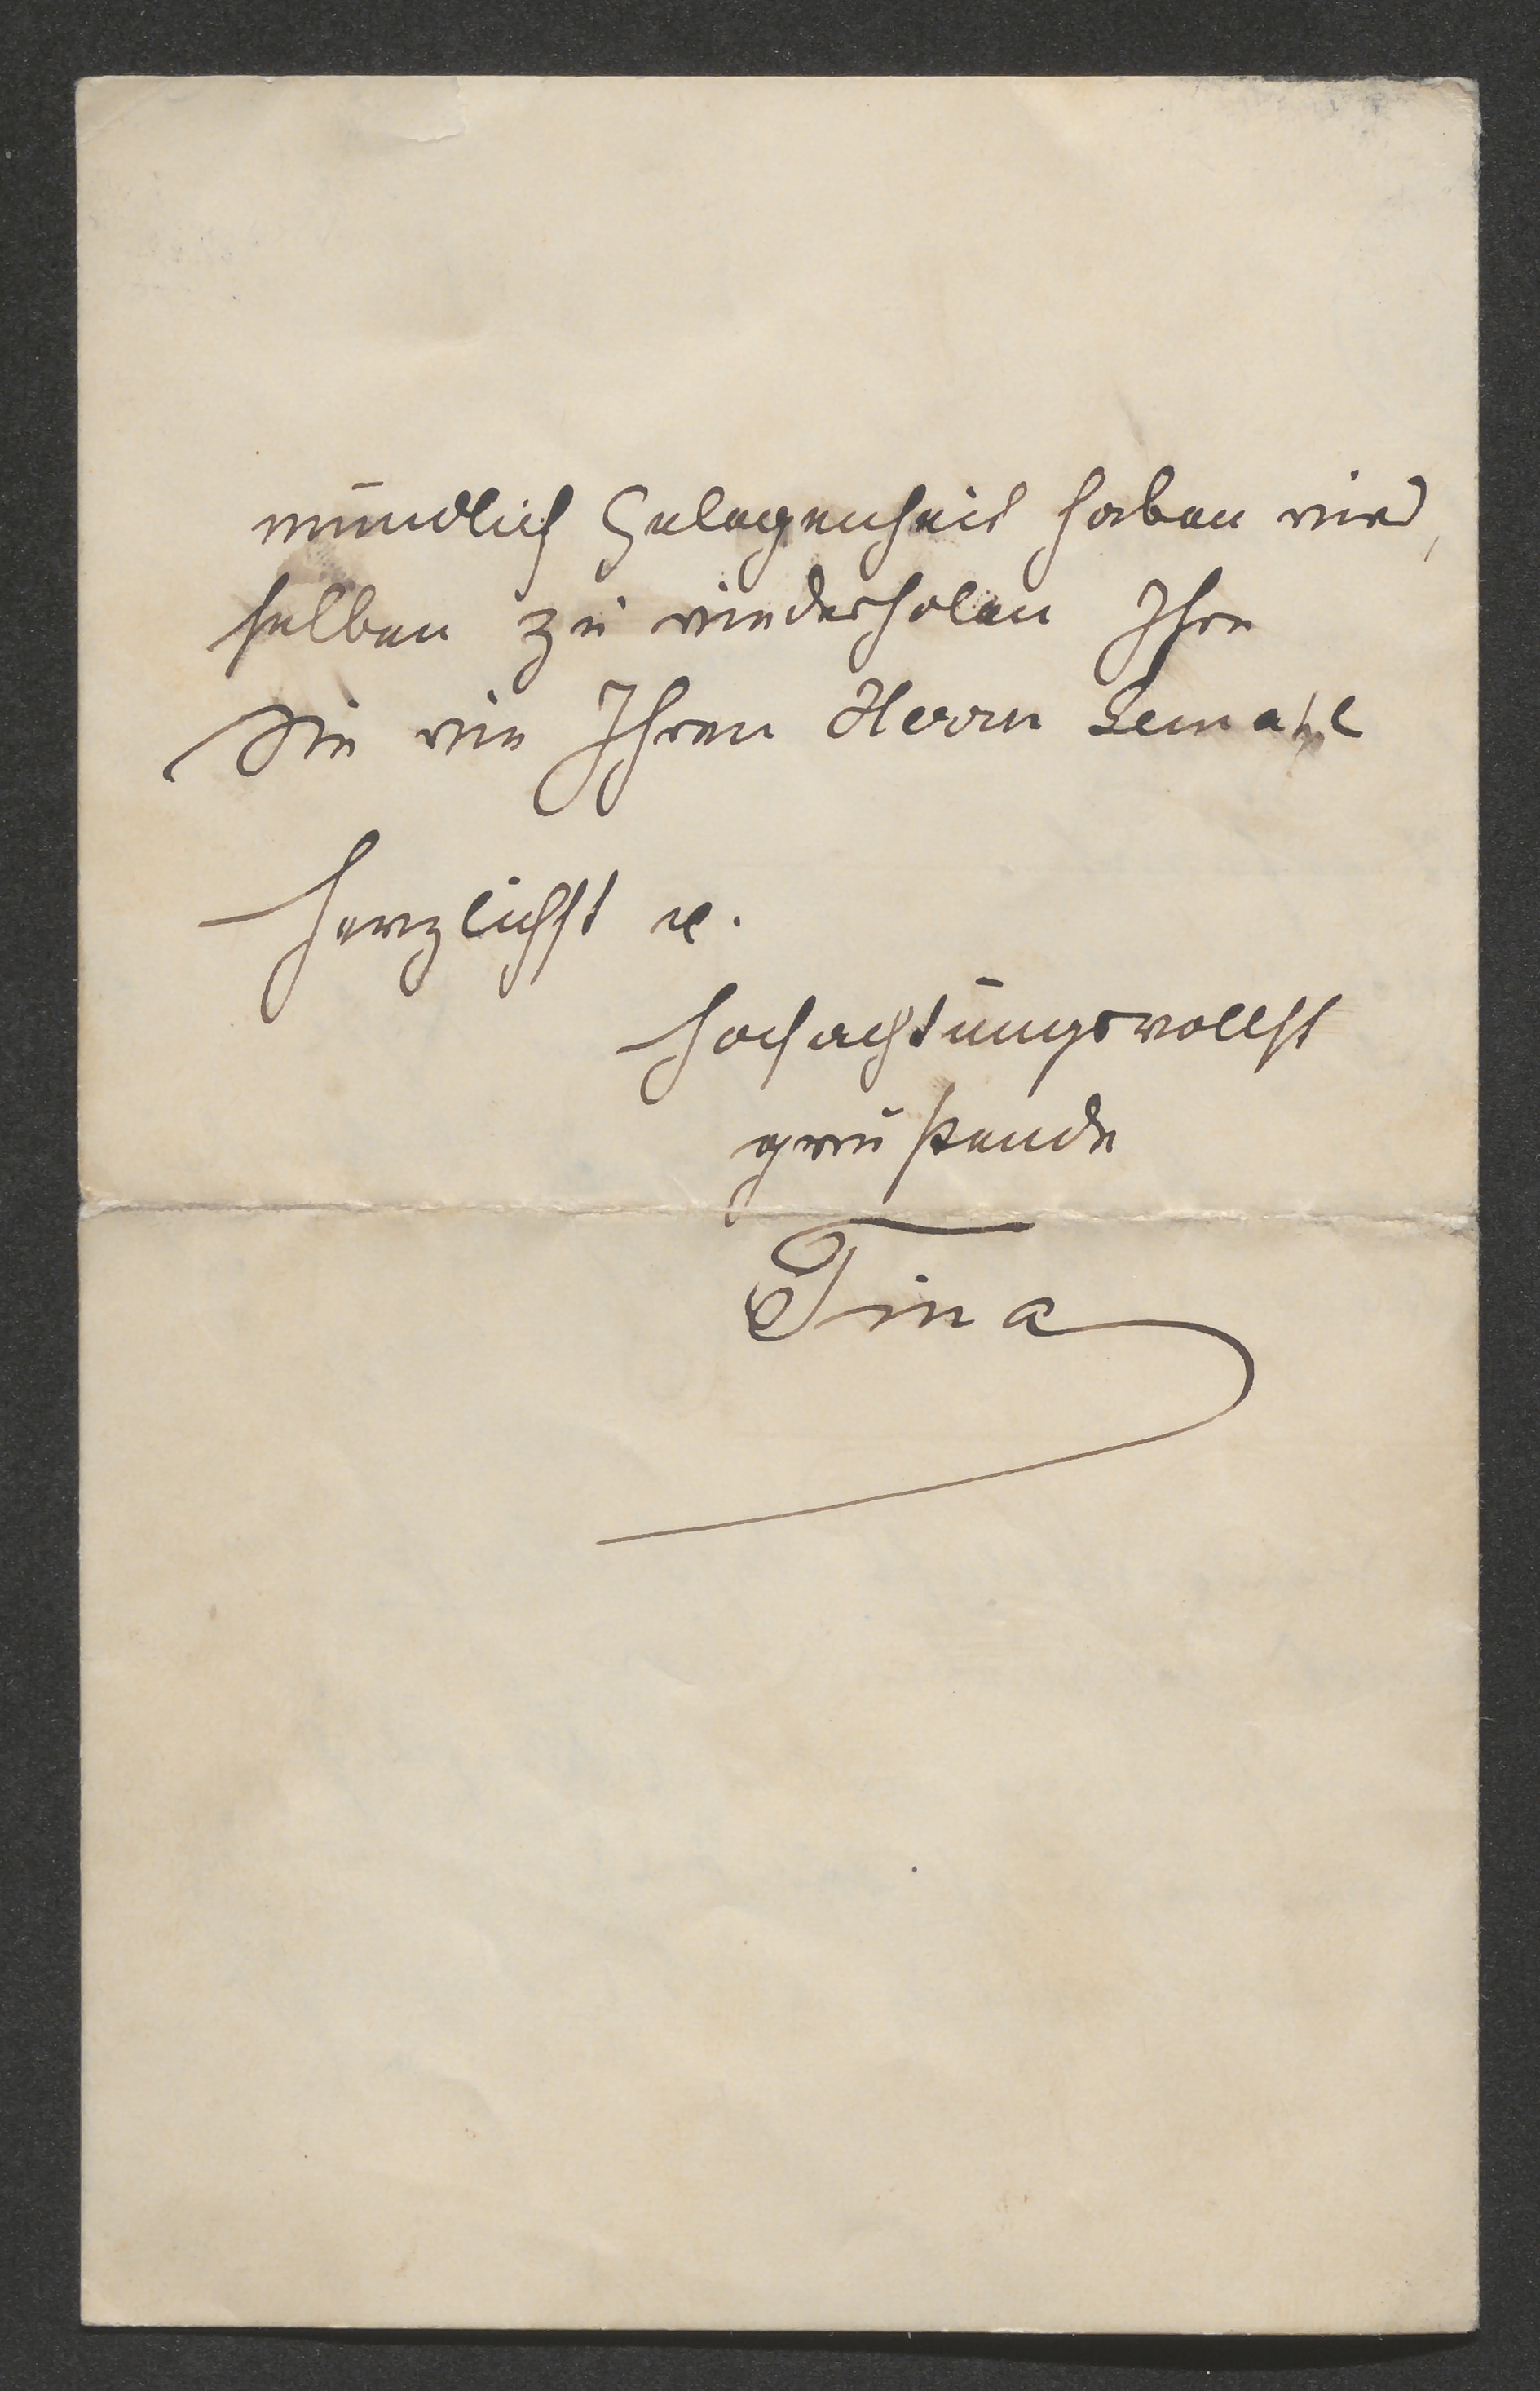 mündlich Gelegenheit haben wird,
selben zu wiederholen Ihre
Sie wie Ihren Herrn Gemahl
herzlichst u.
hochachtungsvollst
grüßende
Tina